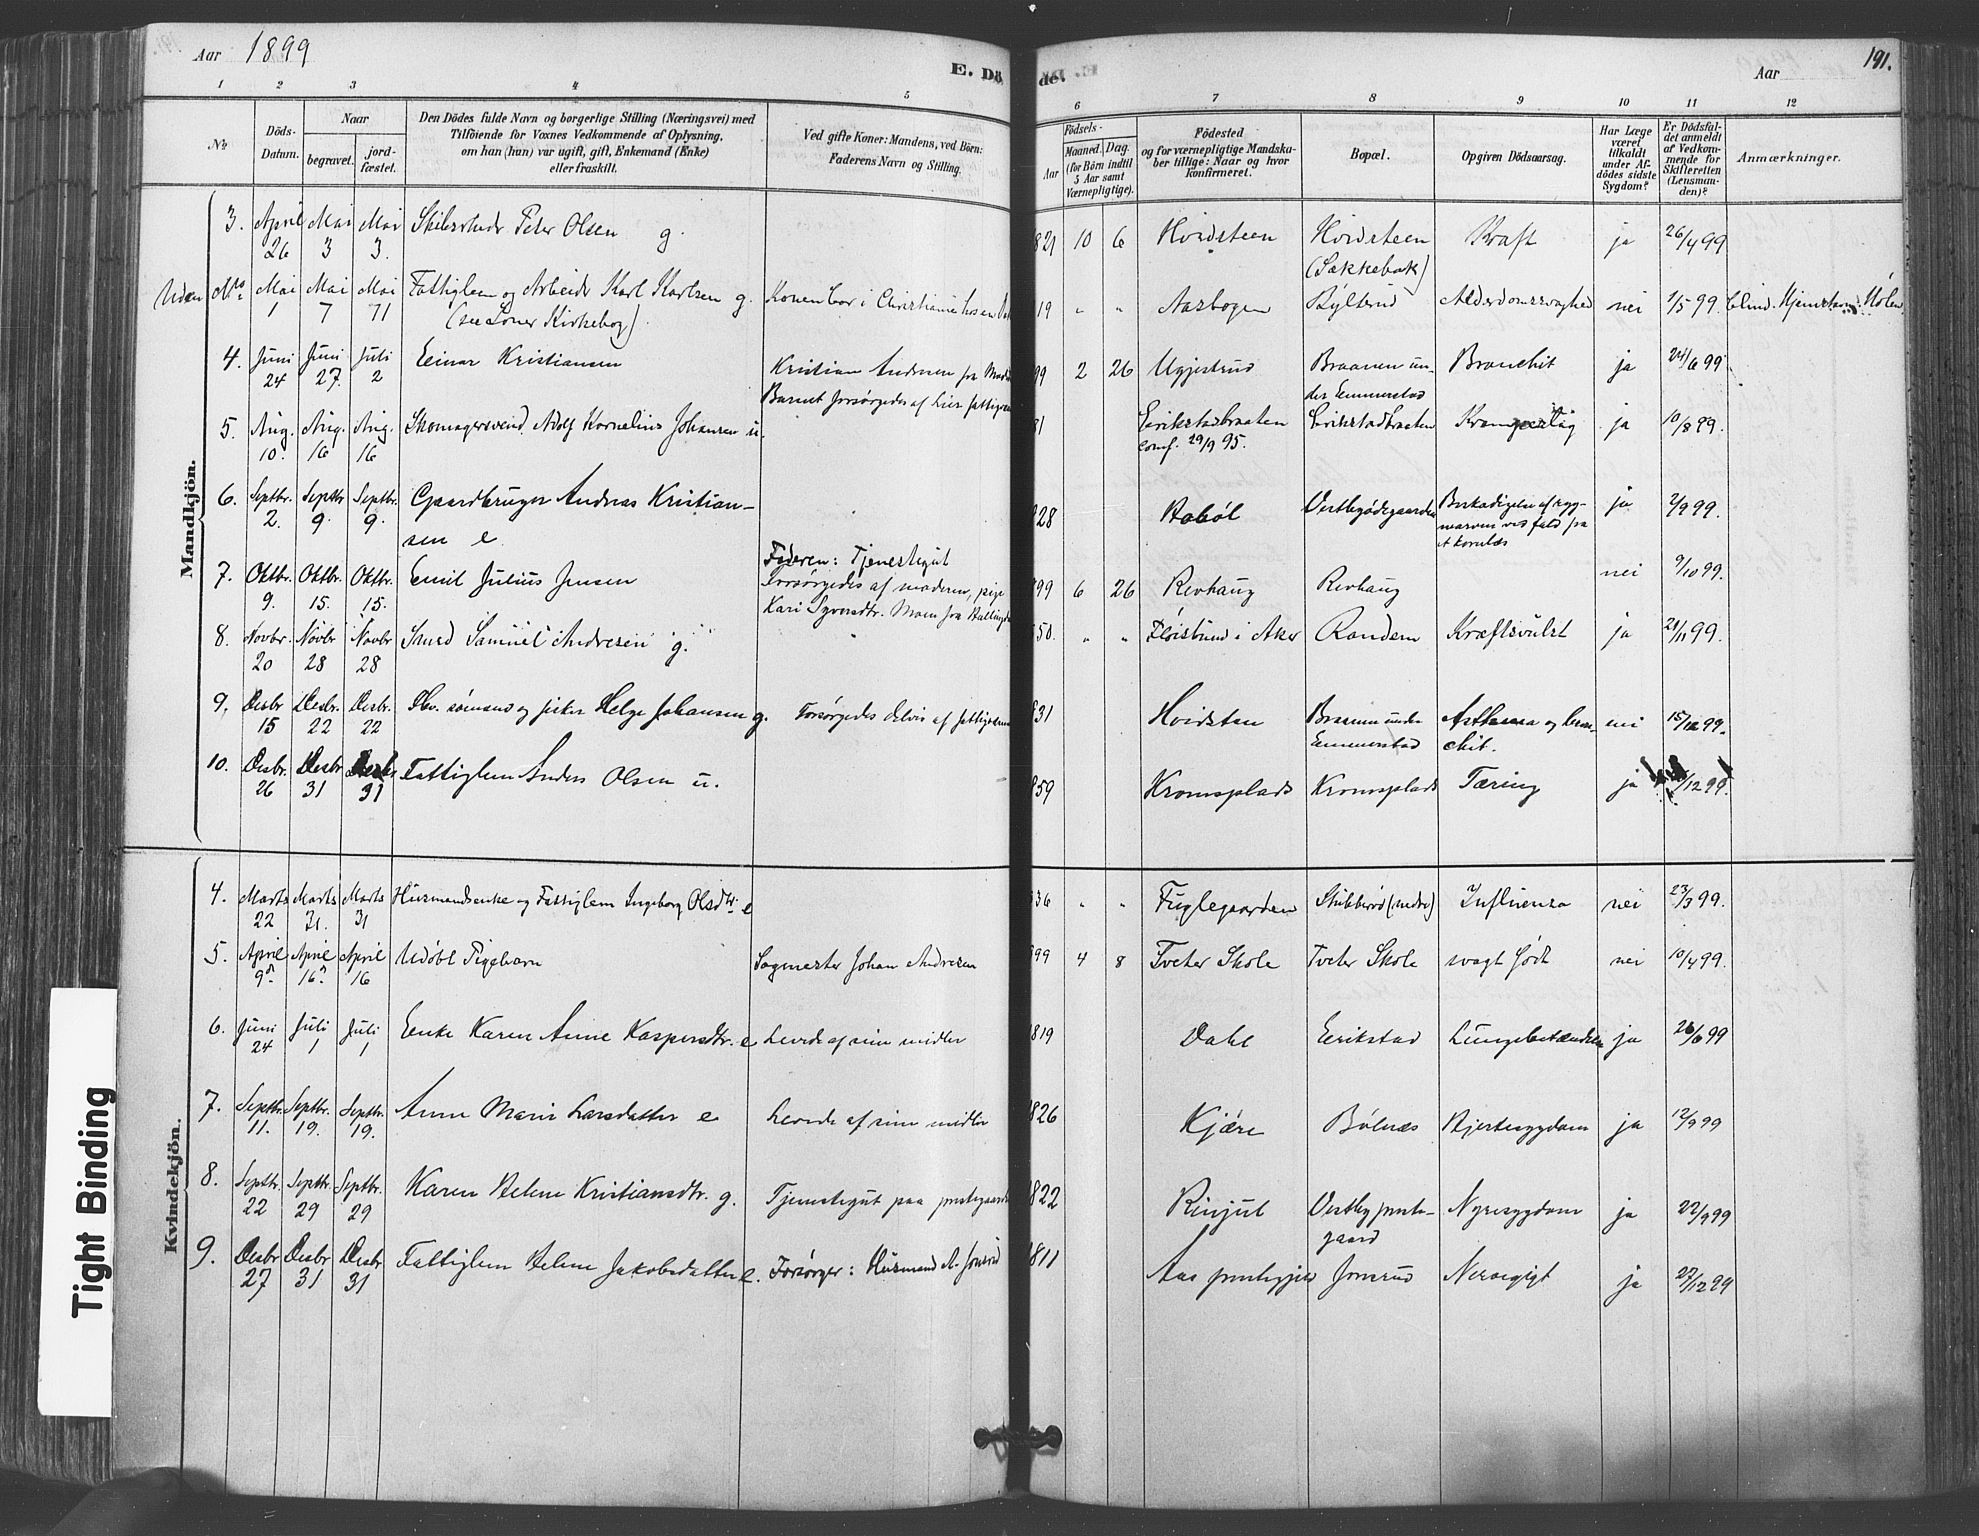 Aar 1899
E. Dö
de.
Aar
191.
1 2 3 4 5 6 7 8 9 10 11 12
No
Döds-Datum.
Naar
begravet.
jord-fæstet.
Den Dödes fulde Navn og borgerlige Stilling (Næringsvei) med
Tilföiende for Voxnes Vedkommende af Oplysning,
om han (hun) var ugift, gift, Enkemand (Enke)
eller fraskilt.
Ved gifte Koner: Mandens, ved Börn:
Faderens Navn og Stilling.
Födsels-
Aar
Maaned. Dag.
(for Börn indtil
5 Aar samt
Værnepligtige).
Födested
og for værnepligtige Mandska-
ber tillige: Naar og hvor
konfirmeret.
Bopæl.
Opgiven Dödsaarsag.
Har Læge
været
tilkaldt
under Af-
dödes sidste
Sygdom?
Er Dödsfal-
det anmeldt
af Vedkom-
mende for
Skifteretten
(Lensman-
den)?
Anmærkninger.
Mandkjön.
3. April 26 Mai 3 Mai 3. Peter Olsen g. 821 10 6 Hvidsteen Hvidsteen (Sækkebak) Kræft ja 26/4 99
Uden No. Mai 1 Mai 7 Mai 71 Fattiglem og Arbeider Karl Karlsen g. Konen bor i Christiania hos en 19 " " Aasbogen Alderdomssvaghed nei 1/5 99. blind.
(se Soner Kirkebog)
4. Juni 24 Juni 27. Juli 2 Einar Kristiansen Kristian Andersen fra 99 2 26 Ugjestrud Braanen un-der Emmerstad Bronchit ja 24/6 99.
Barnet forsørgedes af Lier fattigv
5. Aug. 10. Aug. 16 Aug. 16 Skomagersvend Adolf Kornelius Johansen u. 81 Eirikstadbraaten Eirikstadbraaten ja 10/8 99.
conf. 29/9 95.
6. Septbr. 2. Septbr 9. Septbr. 9. Gaardbruger Andreas Kristian-
sen e. 828 Robøl Vestbyødegaarden Beskadigelse af ryg-marven ved fald fra et kornlæs ja 2/9 99.
7. Oktbr. 9. Oktbr. 15. Oktbr. 15. Emil Julius Jensen Faderen: Tjenestegut
Forsørgedes af moderen, pige
Kari Syversdtr. Moen fra Hallingd 899 6 26 Revhaug Revhaug nei 9/10 99.
8. Novbr. 20 Novbr 28 Novbr 28 Smed Samuel Andresen g. 850. " " Fløisbund i Aker Randem Kræftsvulst ja 21/11 99.
9. Desbr 15 Desbr. 22 Desbr. 22 Fhv. sømand og fisker Helge Johansen g. Forsørgedes delvis af fattigvæsen 831 Hvidsten Braanen under Emmerstad Asthma og bron-chit. nei 15/12 99.
10. Desbr. 26 Desbr 31 Desbr 31 Fattiglem Anders Olsen u. 859 Kromsplads Kromsplads Tæring ja /12 99.
Kvindekjön.
4. Marts 22 Marts 31. Marts 31 Husmandsenke og Fattiglem Ingeborg Olsdtr. e 836 " " Fuglegaarden Stubberød (nedre) Influenza nei 23/3 99.
5. April 9. April 16. April 16 Udøbt Pigebarn Sagmester Johan Andresen 899 4 8 Tveter Skole Tveter Skole svagt født nei 10/4 99.
6. Juni 24 Juli 1 Juli 1 Enke Karen Anne Kaspersdtr. e Levede af sine midler 819 Dahl Eerikstad Lungebetændelse ja 26/6 99
7. Septbr. 11. Septbr. 19. Septbr. 19. Anne Marie Larsdatter e Levede af sine midler 826 Kjære Bølnæs Hjertesygdom ja 12/9 99
8. Septbr. 22 Septbr. 29 Septbr. 29 Karen Helene Kristiansdtr. g. Tjenestegut paa prestegaard 1822 Rinjul Vestby preste-gaard Nyresygdom ja 22/9 99
9. Desbr 27 Desbr 31 Desbr 31 Fattiglem Helene Jakobsdatter e. Forsørger: Husmand A. Jonsrud 1811 Aas prestegjeld Jonsrud Nervegigt ja 27/12 99
Tight Binding